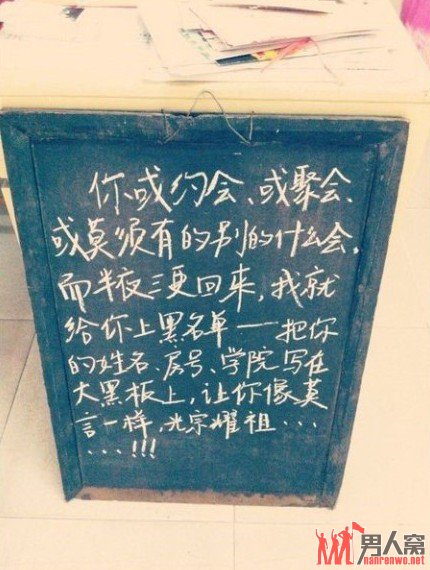 你或约会、或聚会、
或莫须有的别的什么会,
而半夜三更回来,我就
给你上黑名单——把你
的姓名、房号、学院写在
大黑板上,让你像莫
言一样,光宗耀祖…
…!!!
男人窝
nanrenwo.net